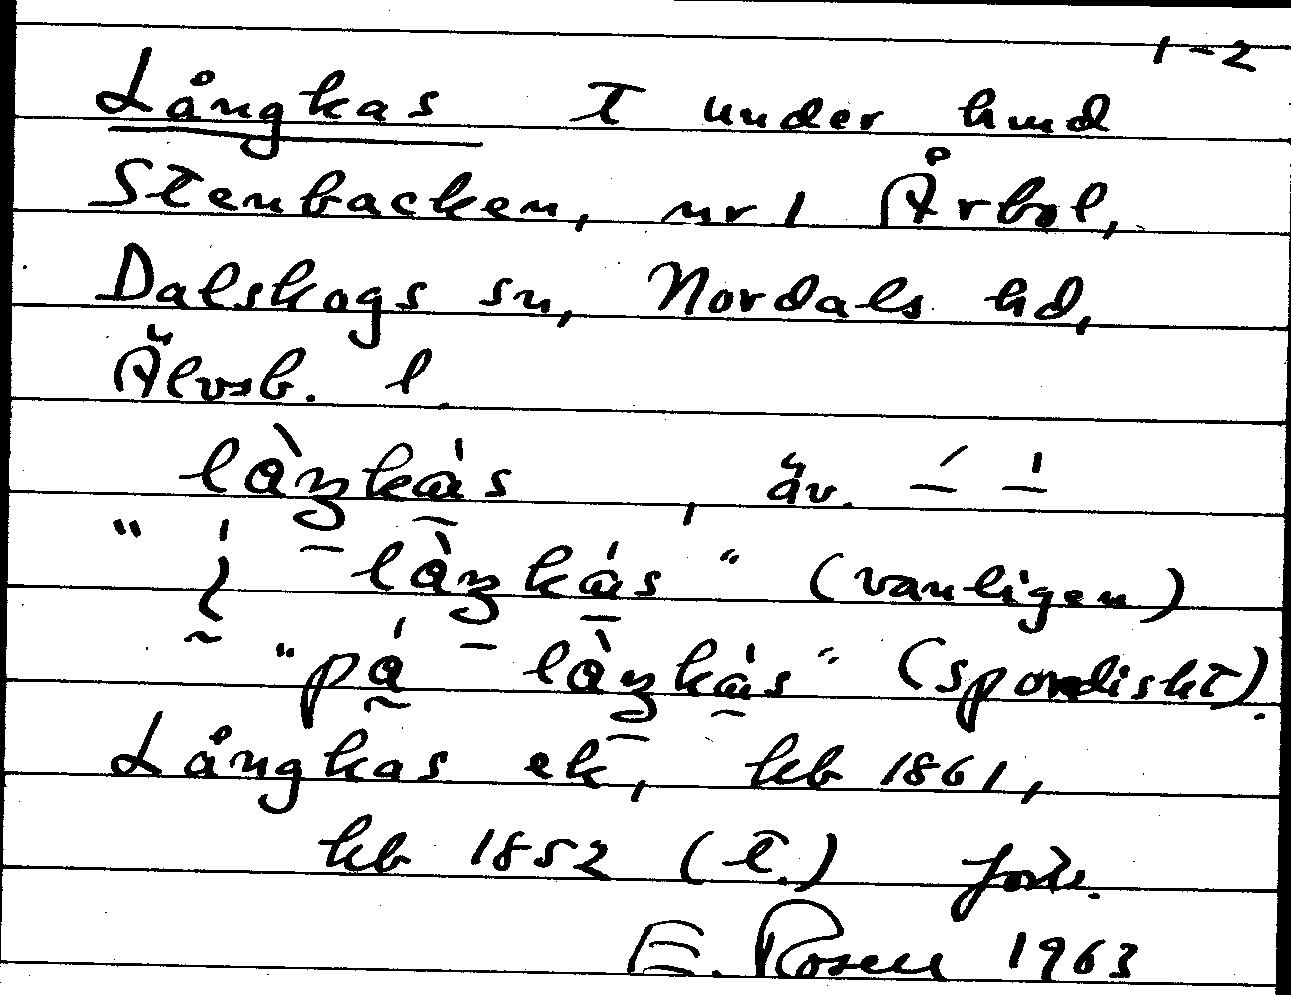 1-2
Långkas t under hmd
Stenbacken, nr 1 Årbol,
Dalskogs sn, Nordals hd,
Älvsb. l.
làŋkás, äv. –́ –̍
"i låŋkas" (vanligen)
"på låŋkas" (sporadiskt).
Långkas ek, kb 1861,
kb 1852 (t.) forts.
E. Rosell 1963